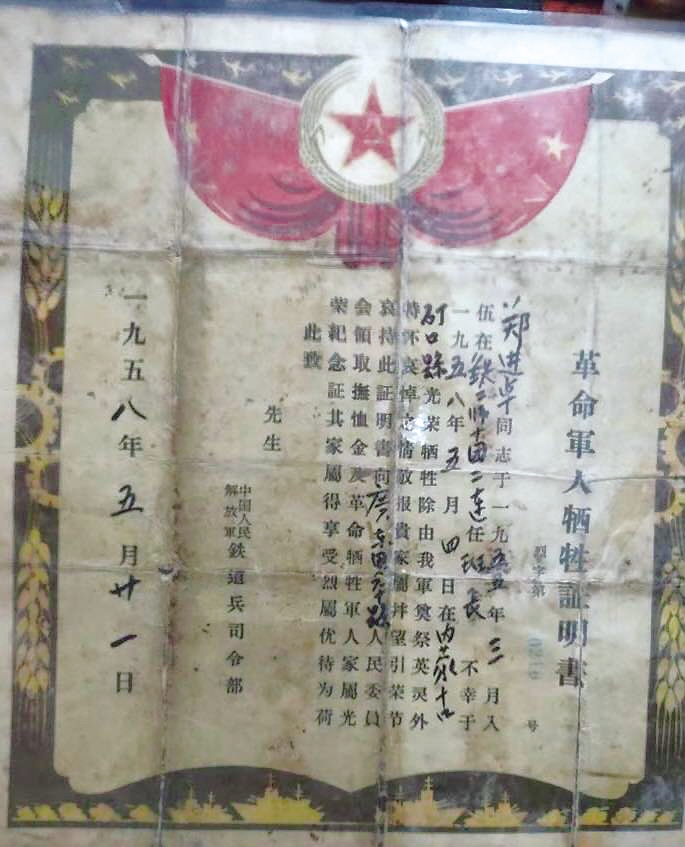 革命軍人牺牲証明書
烈字第 号
郑进卓同志于一九五五年三月入
伍在铁二师十团二连任班长不幸于
一九五八年五月四日在内蒙
口县光荣牺牲除由我軍奠祭英灵外
特怀哀悼之情敬报貴家屬并望引荣节
哀持此証明書向廣东 县人民委員
会領取撫恤金及革命牺牲軍人家屬光
荣紀念証其家屬得享受烈屬优待为荷
此致
先生
中国人民
解放軍
鉄道兵司令部
一九五八年五月廿一日